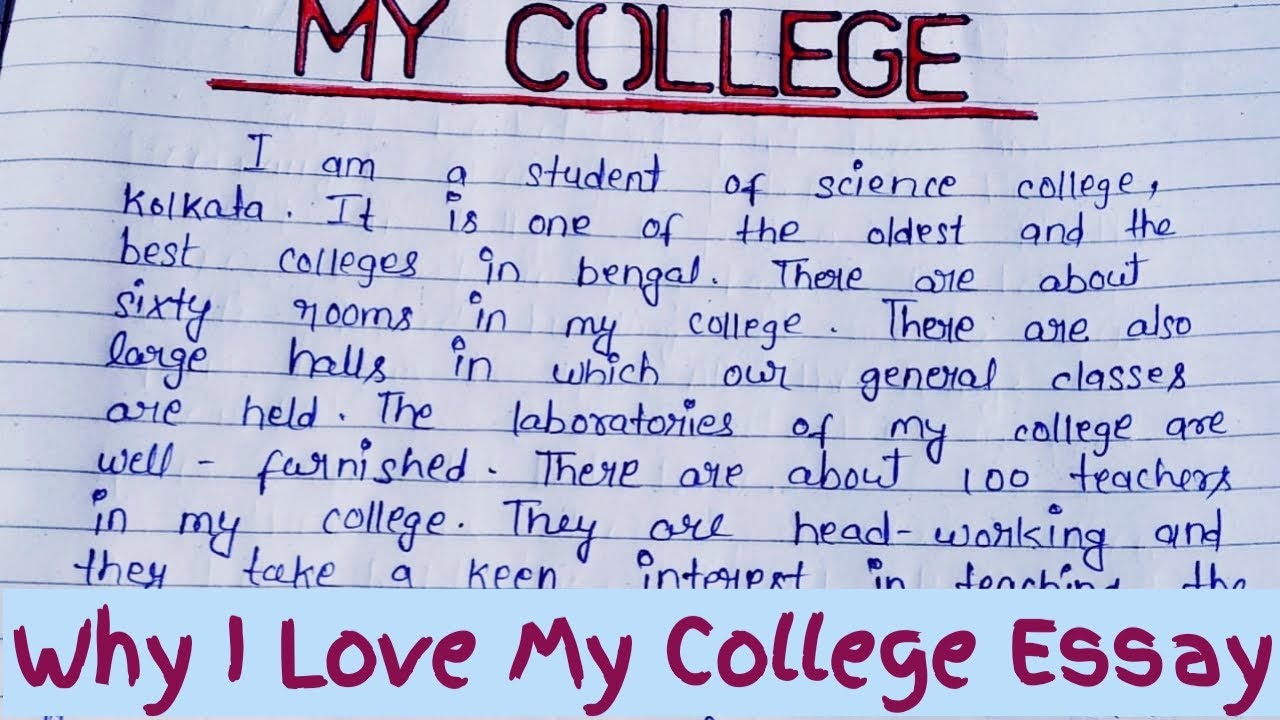 MY COLLEGE
I am a student of science college,
Kolkata. It is one of the oldest and the
best colleges in bengal. There are about
sixty rooms in my college. There are also
large halls in which our general classes
are held. The laboratories of my college are
well-furnished. There are about 100 teachers
in my college. They are head-working and
they take a keen interest in teaching the
Why I Love My College Essay